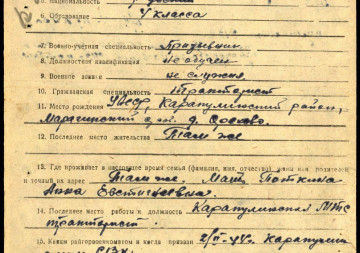 5. Национальность
6. Образование 4 класса
7. Военно-учетная специальность Призывник
8. Должностная квалификация не обучен
9. Военное звание не служил
10. Гражданская специальность Тракторист
11. Место рождения УАССР, Каракулинский район,
12. Последнее место жительства Там же
13. Где проживает в настоящее время семья (фамилия, имя, отчество)
и точный их адрес Там же Мать Поткина
Анна Евстигнеевна.
14. Последнее место работы и должность Каракулинская МТС
тракторист.
15. Каким райгорвоенкоматом и когда призван Каракулин